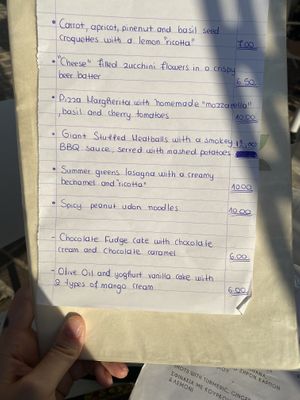 • Carrot, apricot, pinenut and basil seed
croquettes with a lemon "ricotta" 7.00
• "Cheese" filled zucchini flowers in a crispy
beer batter 6.50
• Pizza Margherita with homemade "mozzarella"
, basil and cherry tomatoes 10.00
• Giant Stuffed Meatballs with a smokey
BBQ sauce, served with mashed potatoes.
• Summer greens lasagna with a creamy
bechamel and "ricotta" 10.00
• Spicy peanut udon noodles. 10.00
- Chocolate Fudge cake with chocolate
cream and chocolate caramel 6.00
- Olive Oil and yoghurt vanilla cake with
2 types of mango cream 6.00
WITH TURMERIC, GINGER